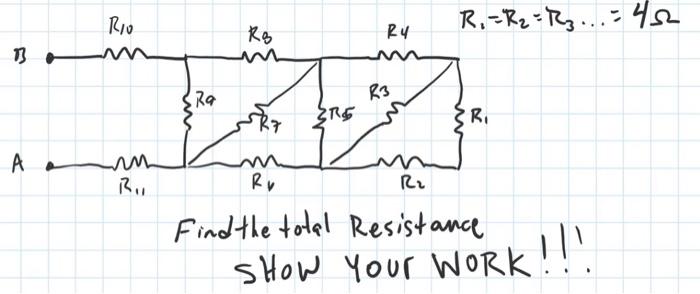 R10 R8 R4 R1=R2=R3...=4Ω
B
R9 R7 R5 R3 R1
A
R11 R6 R2
Find the total Resistance
SHOW YOUR WORK!!!